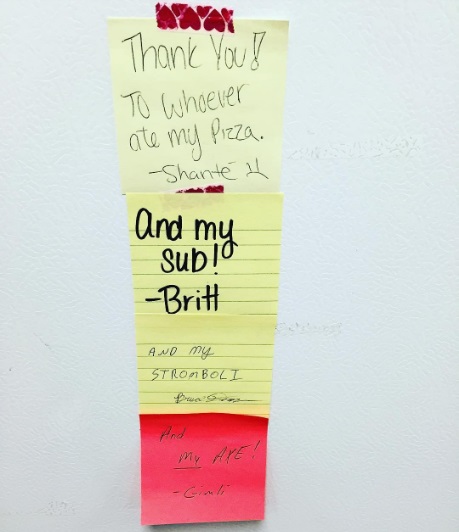 Thank You!
To Whoever
ate my Pizza.
-Shanté
And my
sub!
-Britt
AND My
STROMBOLI
And
My AXE!
-Gimli